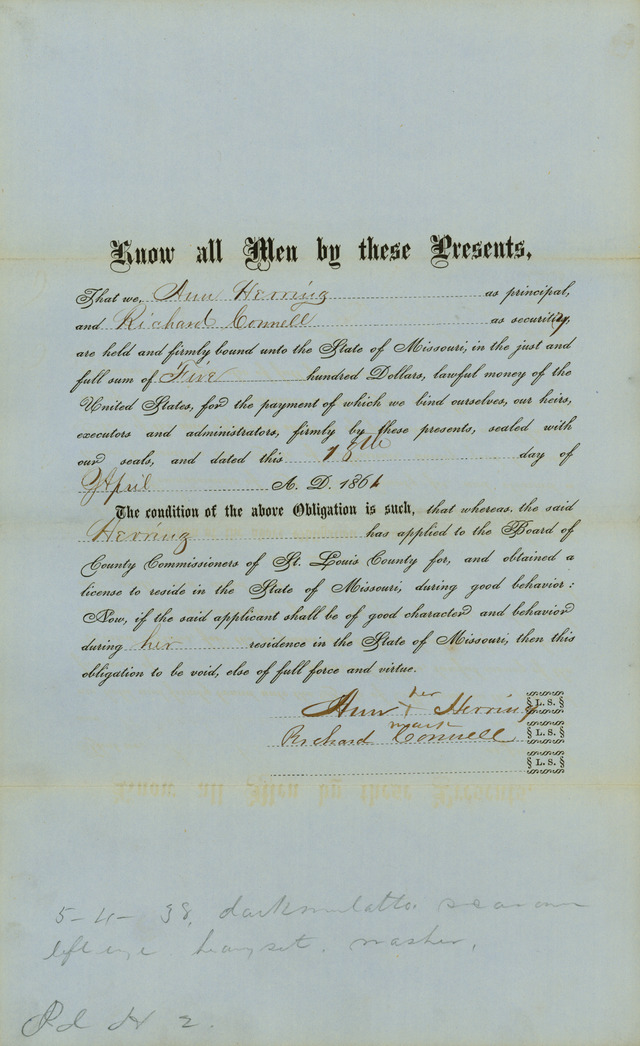 Know all Men by these Presents,
That we, Ann Herring as principal,
and Richard Connell as security,
are held and firmly bound unto the State of Missouri, in the just and
full sum of Five hundred Dollars, lawful money of the
United States, for the payment of which we bind ourselves, our heirs,
executors and administrators, firmly by these presents, sealed with
our seals, and dated this 18th day of
April A. D. 1861
The condition of the above Obligation is such, that whereas, the said
Herring has applied to the Board of
County Commissioners of St. Louis County for, and obtained a
license to reside in the State of Missouri, during good behavior:
Now, if the said applicant shall be of good character and behavior
during her residence in the State of Missouri, then this
obligation to be void, else of full force and virtue.
her
Ann + Herring § L. S. §
mark
Richard Connell § L. S. §
§ L. S. §
5-4- 38, dark mulatto scar over
left eye heavy set. washer,
Pd
2.